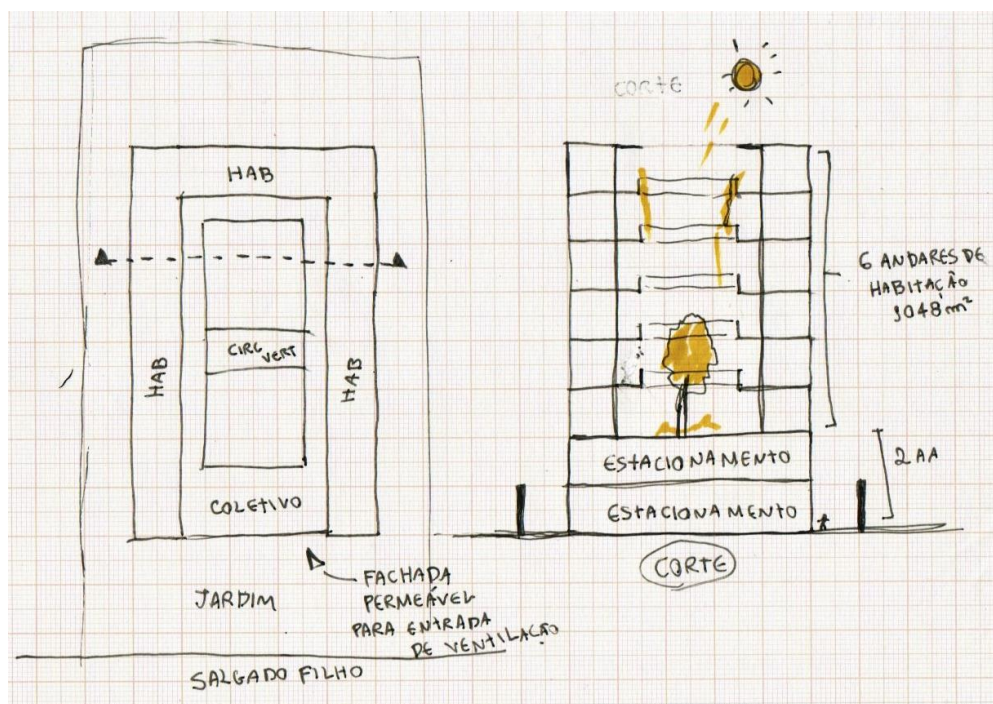 HAB
CIRC VERT
HAB
HAB
COLETIVO
FACHADA
PERMEÁVEL
PARA ENTRADA
DE VENTILAÇÃO
JARDIM
SALGADO FILHO
CORTE
6 ANDARES DE
HABITAÇÃO
1048 m²
2 AA
ESTACIONAMENTO
ESTACIONAMENTO
CORTE